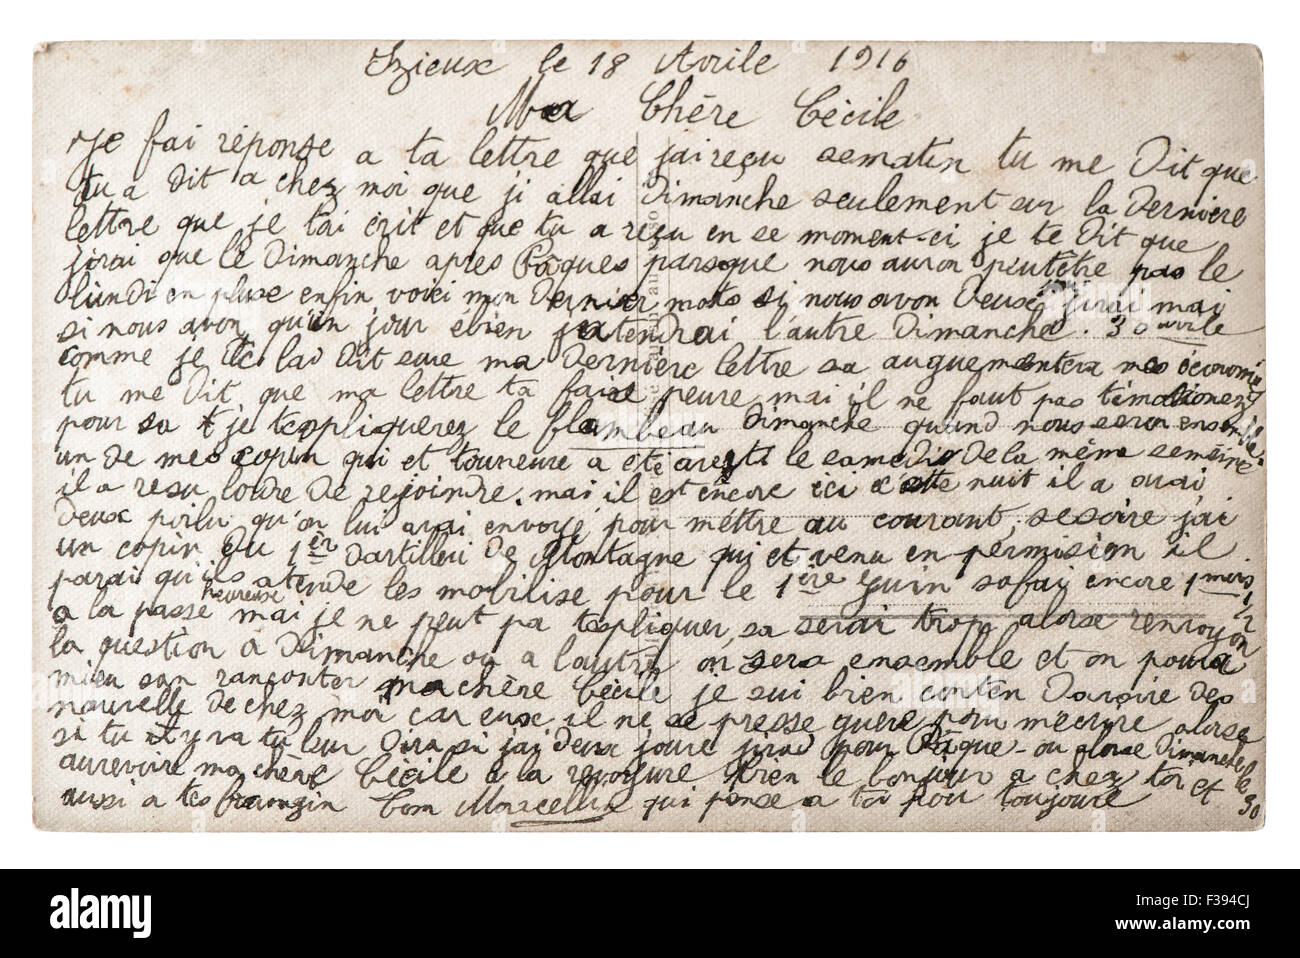 Izieux le 18 Avrile 1916
Ma Chère Cécile
Je fai réponse a ta lettre que jai reçu sematin tu me dit que
tu a dit a chez moi que ji allai Dimanche seulement sur la derniere
lettre que je tai ecrit et que tu a reçu en se moment-ci je te dit que
jirai que le Dimanche apres Pâques parsque nous auron peutêtre pas le
lundi en pluse enfin voici mon dernier mots si nous avon deuse jirai mai
si nous avon qu'un jour ébien jatendrai l'autre dimanche. 30 avrile
comme je te lai dit sure ma dernière lettre sa augumentera mes économies
tu me dit que ma lettre ta faise peure mai il ne faut pas témotionez
pour sa je texpliquerez le flambeau dimanche quand nous seron ensemble.
un de mes copin qui et tourneure a été areté le samedi de la même semaine
il a resu lordre de rejoindre. mai il est encore ici cette nuit il a avai
deux poilu qu'on lui avai envoyé pour méttre au courant, sesoire j'ai
un copin du 1er dartilleri de Montagne qui et venu en permision il
parai qu'ils atende les mobilise pour le 1ère Juin safai encore 1 mois 1/2
a la passe heureuse mai je ne peut pa texpliquer, sa serai trop, alorse renvoyon
la question a Dimanche ou a l'autre on sera ensemble et on poura
mieu san ranconter ma chère Cécile je sui bien conten davoire des
nouvelle de chez moi car euse il ne se presse guère pour mecrire alorse
si tu it y va tu leur dira si jai deux joure jirai pour Pâque ou alorse Dimanche le 30
aurevoire ma chère Cécile a la revoyure bien le bonjour a chez toi et
aussi a tes frangin ton Marcellin qui pense a toi pour toujoure
alamy
alamy stock photo
F394CJ